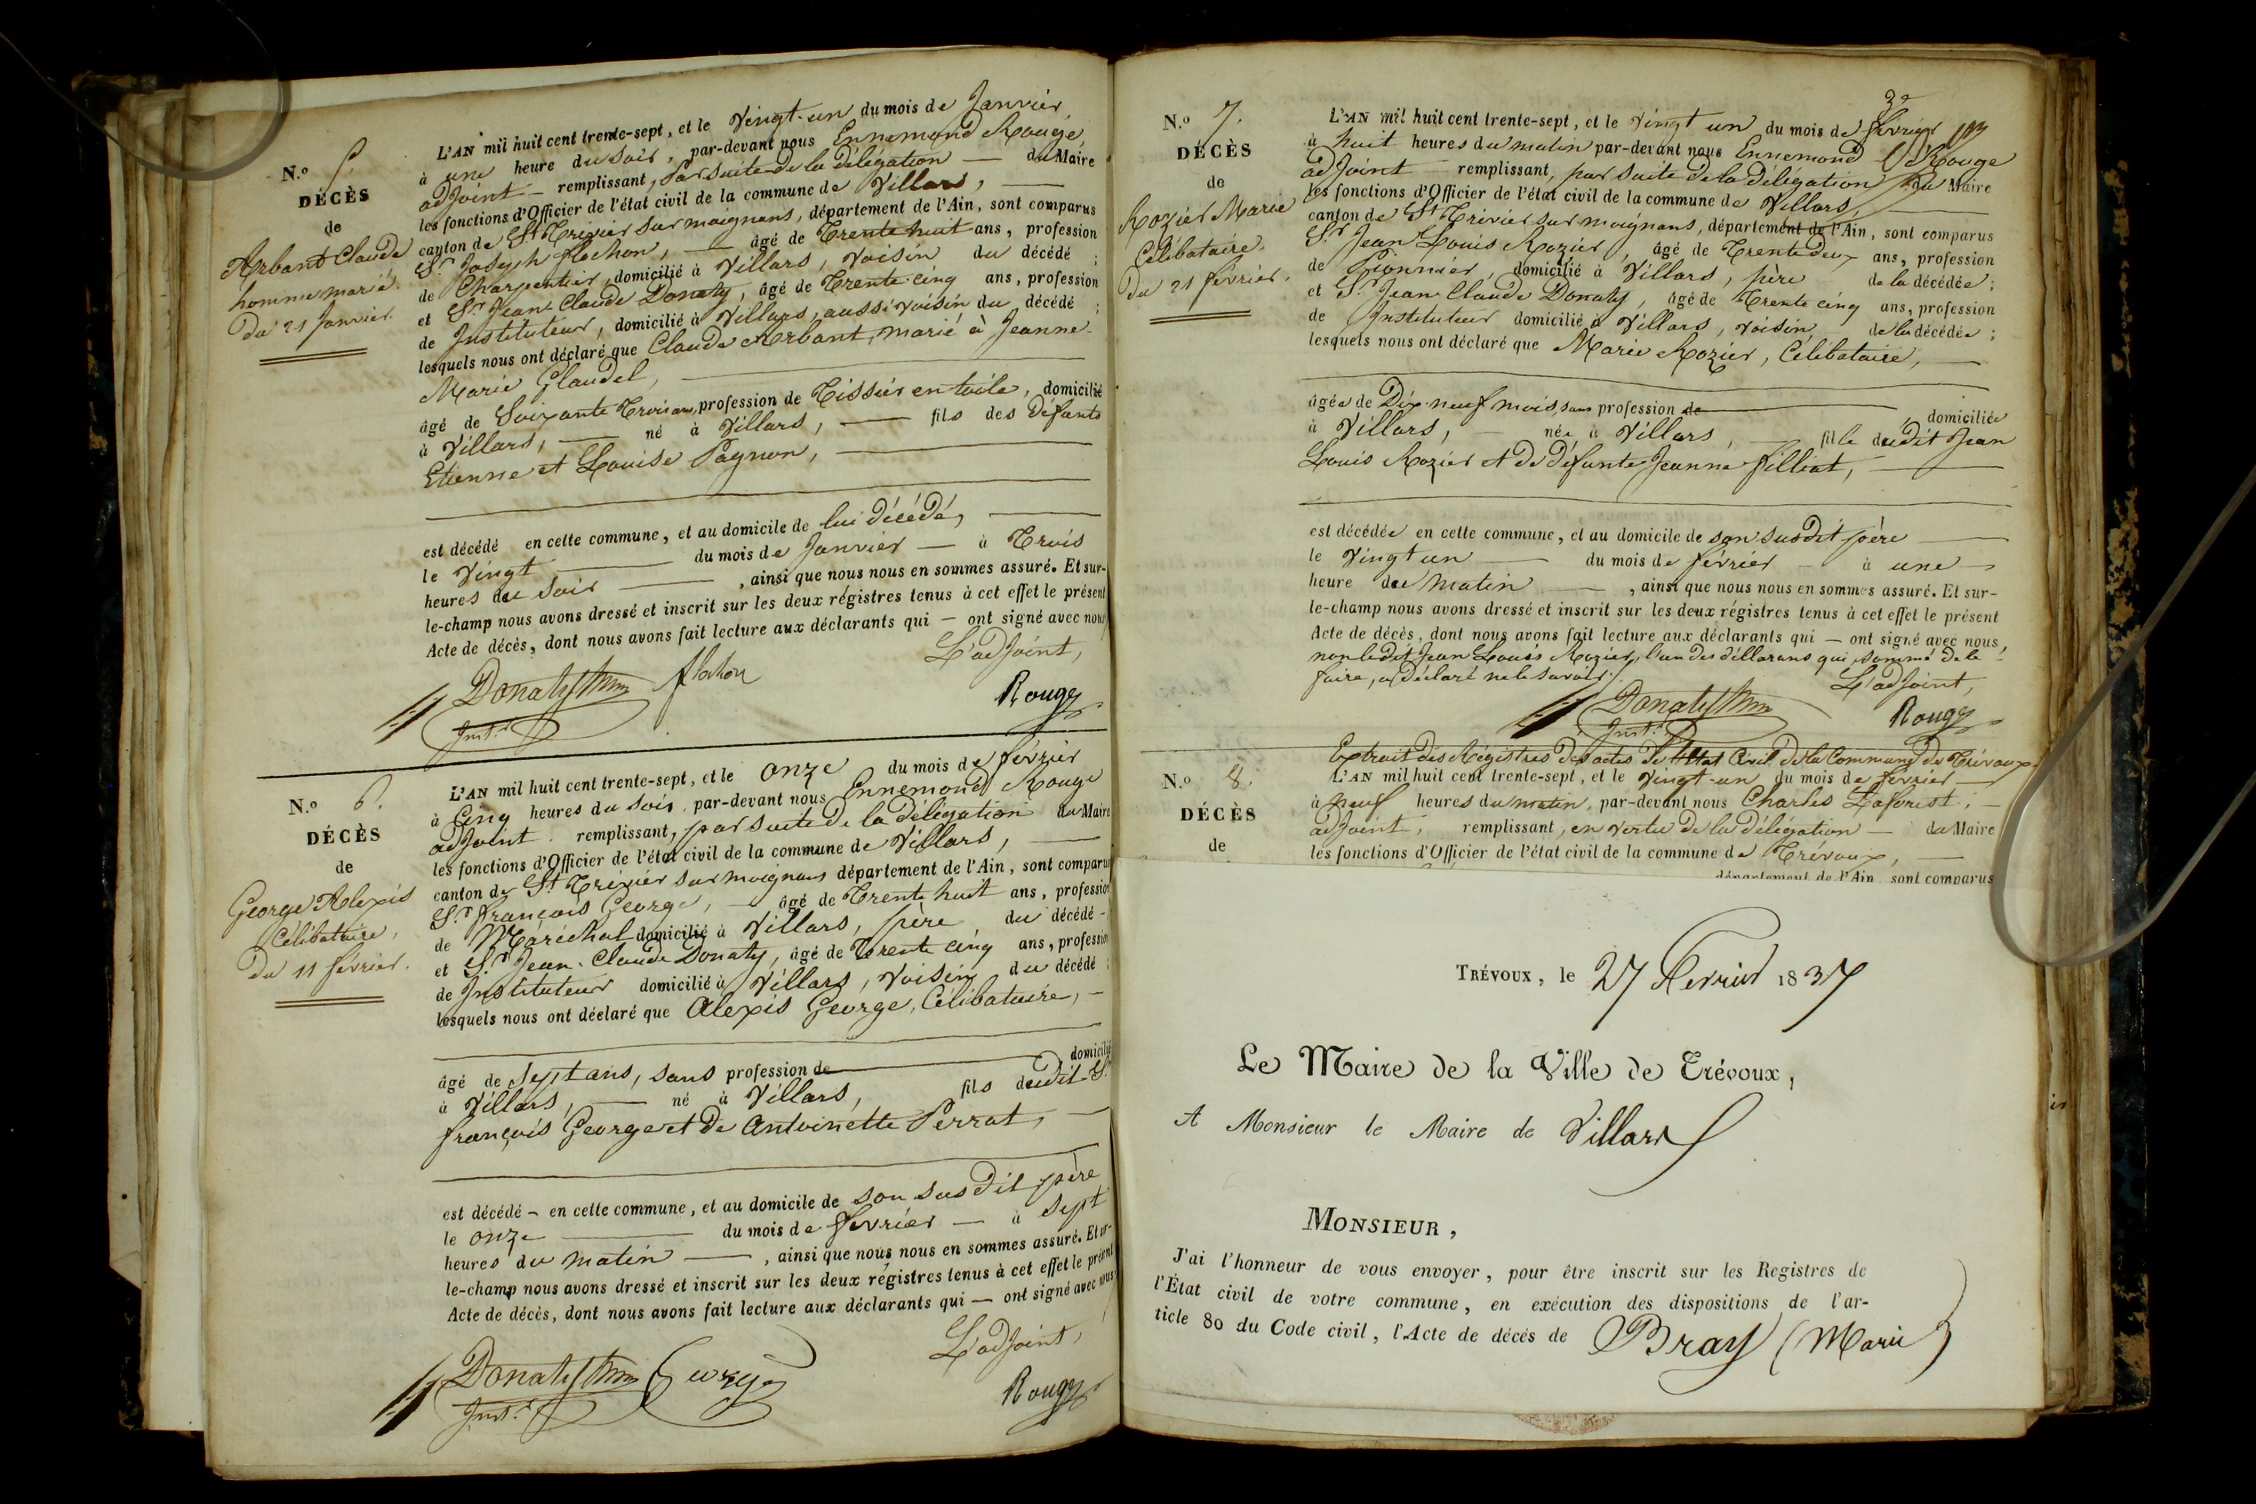 N.o 5.
DÉCÈS
de
Arbant Claude
homme marié.
Du 21 Janvier.
L'AN mil huit cent trente-sept, et le Vingt-un du mois de Janvier
à une heure du soir, par-devant nous Ennemond Rouge,
adjoint — remplissant, par suite de la délégation — du Maire
les fonctions d'Officier de l'état civil de la commune de Villars, —
canton de St Trivier sur moignans, département de l'Ain, sont comparus
Sr. Joseph flochon, — âgé de Trente huit ans, profession
de Charpentier, domicilié à Villars, voisin du décédé ;
et Sr. Jean Claude Donaty, âgé de Trente cinq ans, profession
de Instituteur, domicilié à Villars, aussi voisin du décédé ;
lesquels nous ont déclaré que Claude Arbant, marié à Jeanne-
Marie Glaudel,
âgé de Soixante Trois ans, profession de Tissier en toile, domicilié
à Villars, — né à Villars, — fils des défunts
Etienne et Louise Pagnon, —
est décédé en cette commune, et au domicile de lui décédé, —
le Vingt — du mois de Janvier — à Trois
heures du soir — , ainsi que nous nous en sommes assuré. Et sur-
le-champ nous avons dressé et inscrit sur les deux régistres tenus à cet effet le présent
Acte de décès, dont nous avons fait lecture aux déclarants qui — ont signé avec nous,
L'adjoint,
Donaty flochon
Inst.r
Rouge
N.o 6.
DÉCÈS
de
George Alexis
Célibataire,
Du 11 février.
L'AN mil huit cent trente-sept, et le onze du mois de février
à Cinq heures du soir, par-devant nous Ennemond Rouge
adjoint remplissant, par suite de la délégation du Maire
les fonctions d'Officier de l'état civil de la commune de Villars, —
canton de St Trivier sur moignans département de l'Ain, sont comparus
Sr. François George, — âgé de Trente huit ans, profession
de Maréchal domicilié à Villars, père du décédé -
et Sr. Jean-Claude Donaty, âgé de Trente cinq ans, profession
de Instituteur domicilié à Villars, voisin du décédé ;
lesquels nous ont déclaré que Alexis George, Célibataire, —
âgé de Sept ans, sans profession de — domicilié
à Villars, — né à Villars, fils dudit Sr
françois George et de Antoinette Perrat, —
est décédé - en cette commune, et au domicile de son susdit père
le onze — du mois de février — à sept
heures du matin — , ainsi que nous nous en sommes assuré. Et sur-
le-champ nous avons dressé et inscrit sur les deux régistres tenus à cet effet le présent
Acte de décès, dont nous avons fait lecture aux déclarants qui — ont signé avec nous
L'adjoint,
Donaty George
Inst.r
Rouge
N.o 7.
DÉCÈS
de
Rozier Marie
Célibataire.
Du 21 février.
L'AN mil huit cent trente-sept, et le Vingt un du mois de février
à huit heures du matin par-devant nous Ennemond Rouge
adjoint — remplissant, par suite de la délégation du Maire
les fonctions d'Officier de l'état civil de la commune de Villars, —
canton de St Trivier sur moignans, département de l'Ain, sont comparus
Sr. Jean Louis Rozier, âgé de Trente deux ans, profession
de Pionnier, domicilié à Villars, père de la décédée ;
et Sr. Jean Claude Donaty, âgé de Trente cinq ans, profession
de Instituteur domicilié à Villars, voisin de la décédée ;
lesquels nous ont déclaré que Marie Rozier, Célibataire, —
âgée de Dix neuf mois, sans profession de — , domiciliée
à Villars, — née à Villars, — fille dudit Jean
Louis Rozier et de défunte Jeanne filliat, —
est décédée en cette commune, et au domicile de son susdit père —
le Vingt un — du mois de février — à une —
heure du matin — , ainsi que nous nous en sommes assuré. Et sur-
le-champ nous avons dressé et inscrit sur les deux régistres tenus à cet effet le présent
Acte de décès, dont nous avons fait lecture aux déclarants qui — ont signé avec nous,
non ledit Jean Louis Rozier, l'un des déllarans qui, sommé de le
faire, a déclaré ne le savoir.
L'adjoint,
Donaty
Inst.r
Rouge
Extrait des Régistres des actes de l'état Civil de la Commune de Trévoux.
N.o 8.
DÉCÈS
de
L'AN mil huit cent trente-sept, et le Vingt-un du mois de février —
à neuf heures du matin, par-devant nous Charles Laforest, —
adjoint, remplissant, en vertu de la délégation — du Maire
les fonctions d'Officier de l'état civil de la commune de Trévoux, —
département de l'Ain, sont comparus
TRÉVOUX, le 27 Fevrier 1837
Le Maire de la Ville de Trévoux,
A Monsieur le Maire de Villars
MONSIEUR,
J'ai l'honneur de vous envoyer, pour être inscrit sur les Registres de
l'État civil de votre commune, en exécution des dispositions de l'ar-
ticle 80 du Code civil, l'Acte de décés de Bray (Marie)